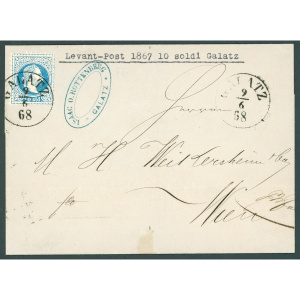 Levant-Post 1867 10 soldi Galatz
GALATZ
2
6
68
ISAC O. ROTTENBERG
GALATZ
GALATZ
2
6
68
Herrn
M. H. Weikersheim &
Wien